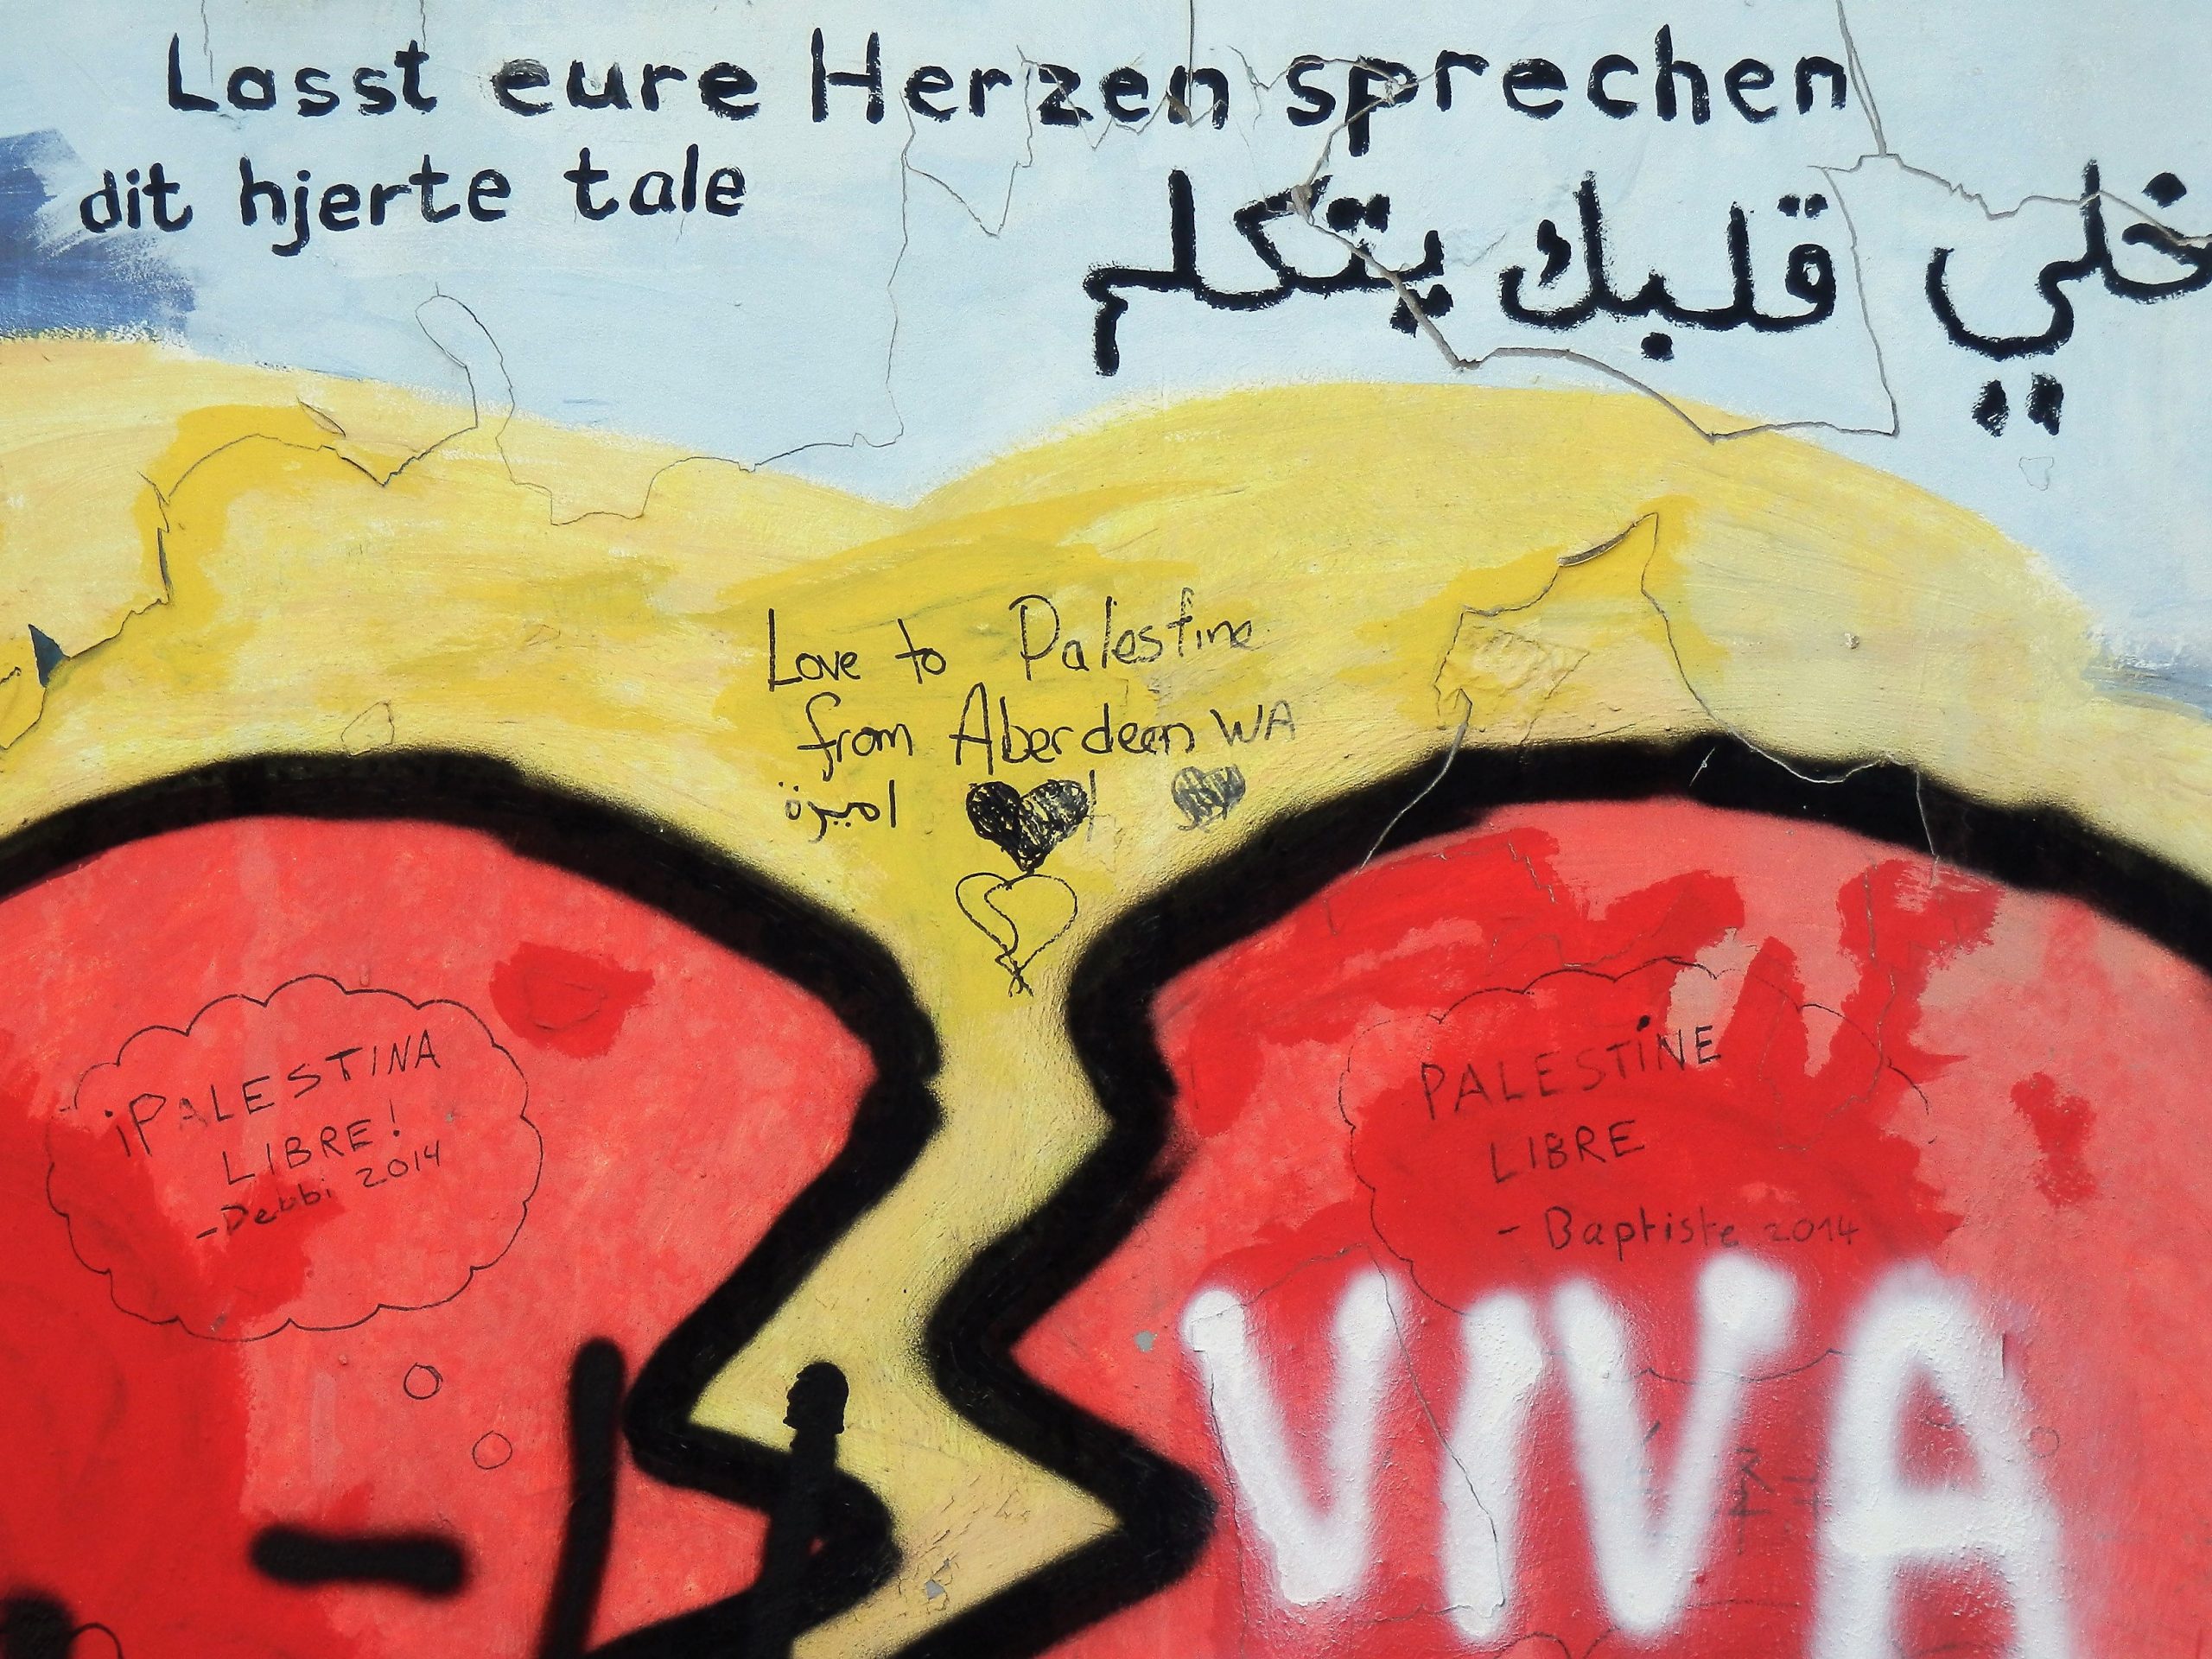 Lasst eure Herzen sprechen
dit hjerte tale
خلي قلبك يتكلم
Love to Palestine
from Aberdeen WA
اميرة
¡PALESTINA
LIBRE!
-Debbi 2014
PALESTINE
LIBRE
- Baptiste 2014
VIVA